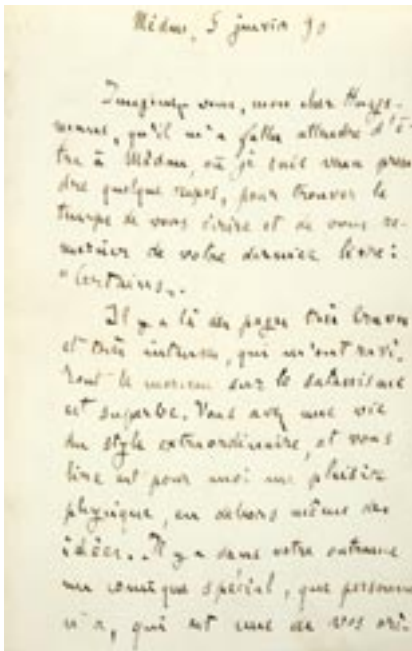 Médan, 5 janvier 90
Imaginez-vous, mon cher Huys-
mans, qu'il m'a fallu attendre d'ê-
tre à Médan, où je suis venu pren
dre quelque repos, pour trouver le
temps de vous écrire et de vous re-
mercier de votre dernier livre :
"Certains".
Il y a là des pages très braves
et très intenses, qui m'ont ravi.
Tout le morceau sur le satanisme
est superbe. Vous avez une vie
du style extraordinaire, et vous
lire est pour moi un plaisir
physique, en dehors même des
idées.. Il y a dans votre outrance
un comique spécial, que personne
n'a, qui est une de vos ori-